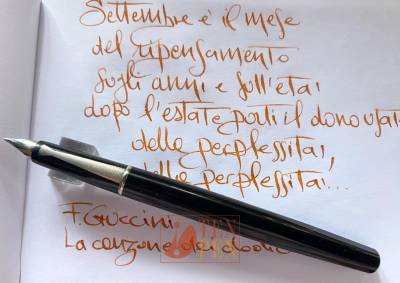 Settembre è il mese
del ripensamento
sugli anni e sull'età:
dopo l'estate porti il dono usato
della perplessità,
della perplessità...
F. Guccini
La canzone dei dodici
TEN
PEN